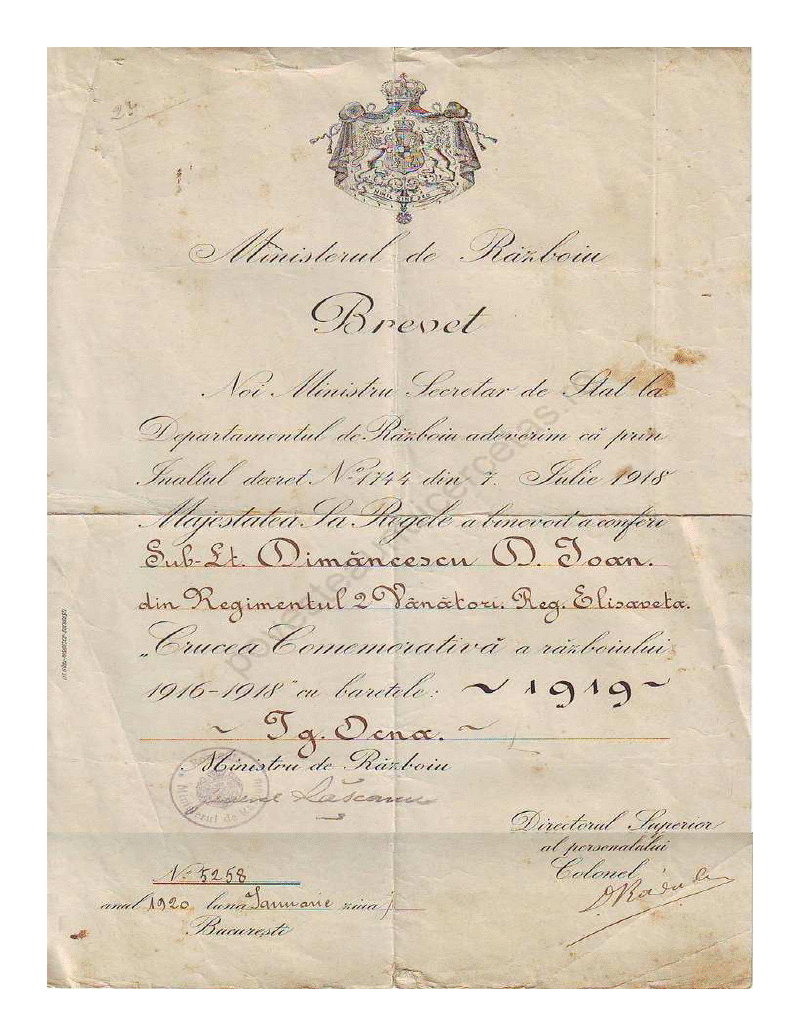 24
NIHIL SINE DEO
Ministerul de Războiu
Brevet
Noi Ministru Secretar de Stat la
Departamentul de Războiu adeverim că prin
Inaltul decret No 1744 din 7. Iulie 1918
Majestatea Sa Regele a binevoit a conferi
Sub-Lt. Dimăncescu D. Ioan.
din Regimentul 2 Vânători. Reg. Elisaveta.
„Crucea Comemorativă a războiului
1916-1918" cu baretele: ~ 1919 ~
~ Tg. Ocna. ~
Ministru de Războiu
Ministerul de
Directorul Superior
al personalului
Colonel
D Rădule
No 5258
anul 1920 luna Ianuarie ziua
Bucureşti